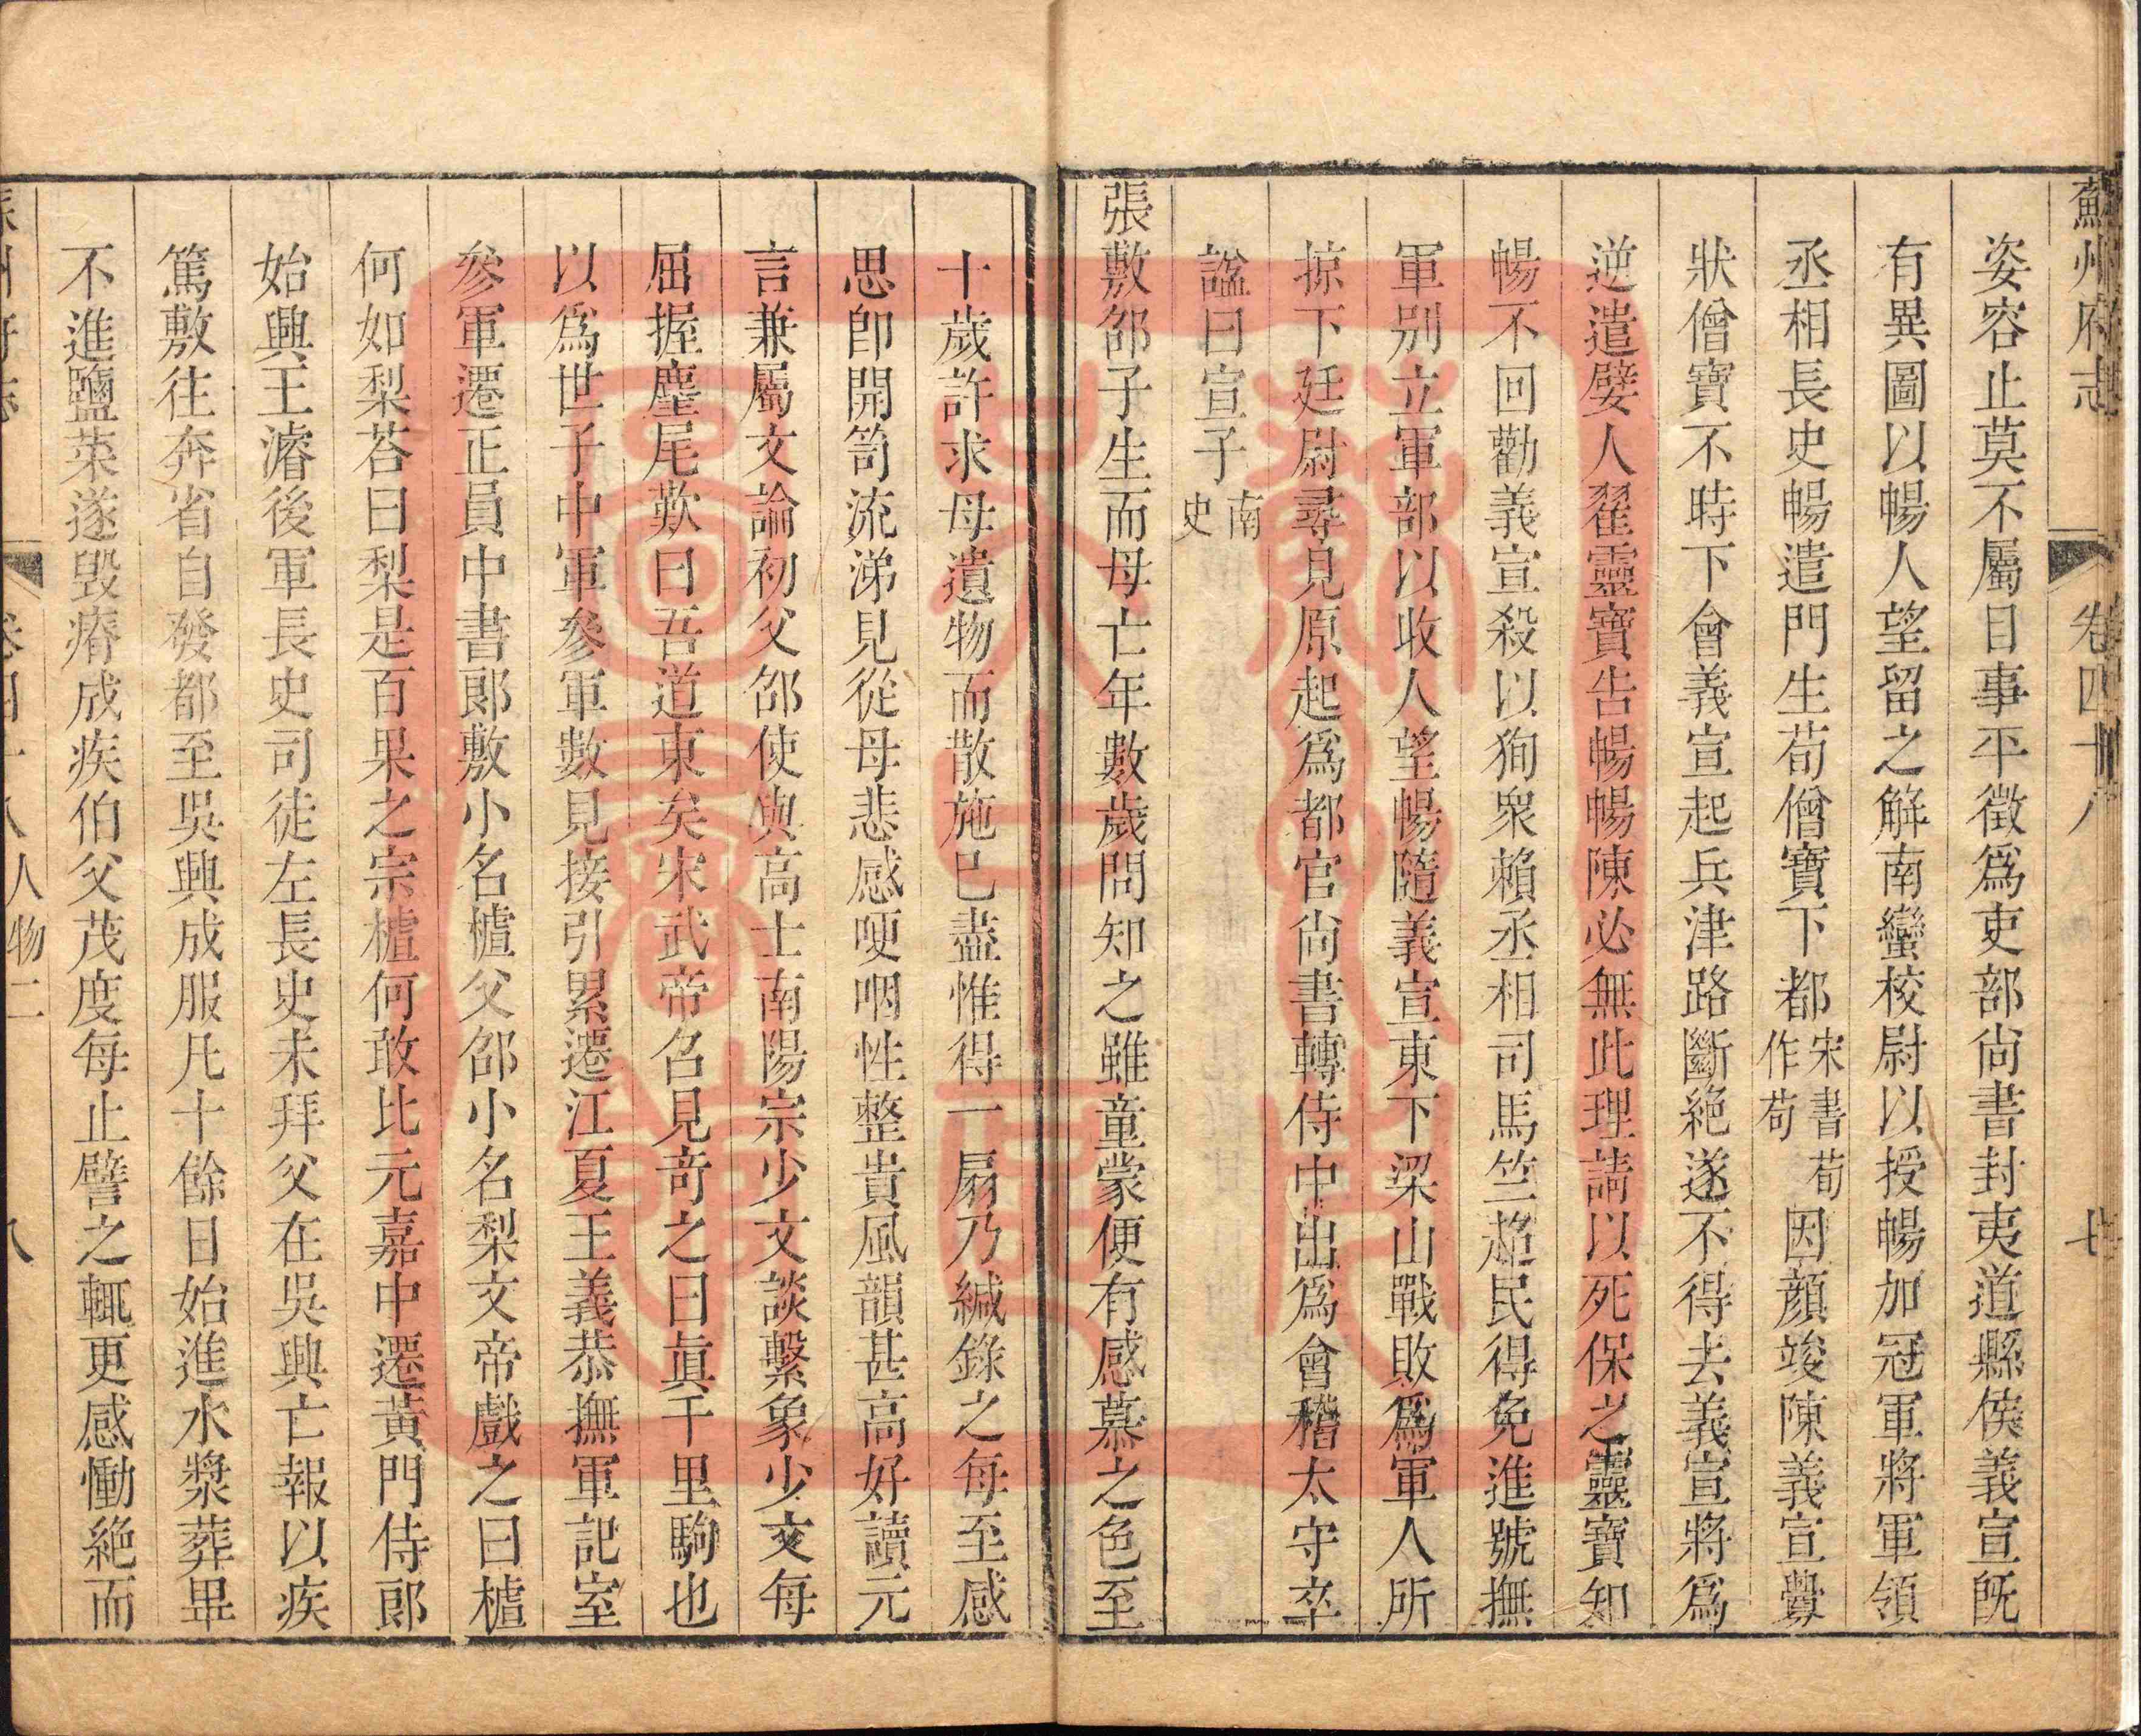 蘇州府志 卷四十八 七
姿容止莫不屬目事平徵爲吏部尚書封夷道縣侯義宣旣
有異圖以暢人望留之解南蠻校尉以授暢加冠軍將軍領
丞相長史暢遣門生荀僧寶下都宋書荀作苟因顔竣陳義宣釁
狀僧寶不時下會義宣起兵津路斷絶遂不得去義宣將爲
逆遣嬖人翟靈寶告暢暢陳必無此理請以死保之靈寶知
暢不回勸義宣殺以狥衆賴丞相司馬竺超民得免進號撫
軍别立軍部以收人望暢隨義宣東下梁山戰敗爲軍人所
掠下廷尉尋見原起爲都官尚書轉侍中出爲會稽太守卒
諡曰宣子南史
張敷邵子生而母亡年數歲問知之雖童蒙便有感慕之色至
十歲許求母遺物而散施巳盡惟得一扇乃緘錄之每至感
思卽開笥流涕見從母悲感哽咽性整貴風韻甚高好讀元
言兼屬文論初父邵使與高士南陽宗少文談繫象少文每
屈握麈尾歎曰吾道東矣宋武帝召見奇之曰眞千里駒也
以爲世子中軍參軍數見接引累遷江夏王義恭撫軍記室
參軍遷正員中書郎敷小名樝父邵小名梨文帝戲之曰樝
何如梨荅曰梨是百果之宗樝何敢比元嘉中遷黃門侍郎
始興王濬後軍長史司徒左長史未拜父在吳興亡報以疾
篤敷往奔省自發都至吳興成服凡十餘日始進水漿葬畢
不進鹽菜遂毀瘠成疾伯父茂度每止譬之輒更感慟絶而
人物二 八